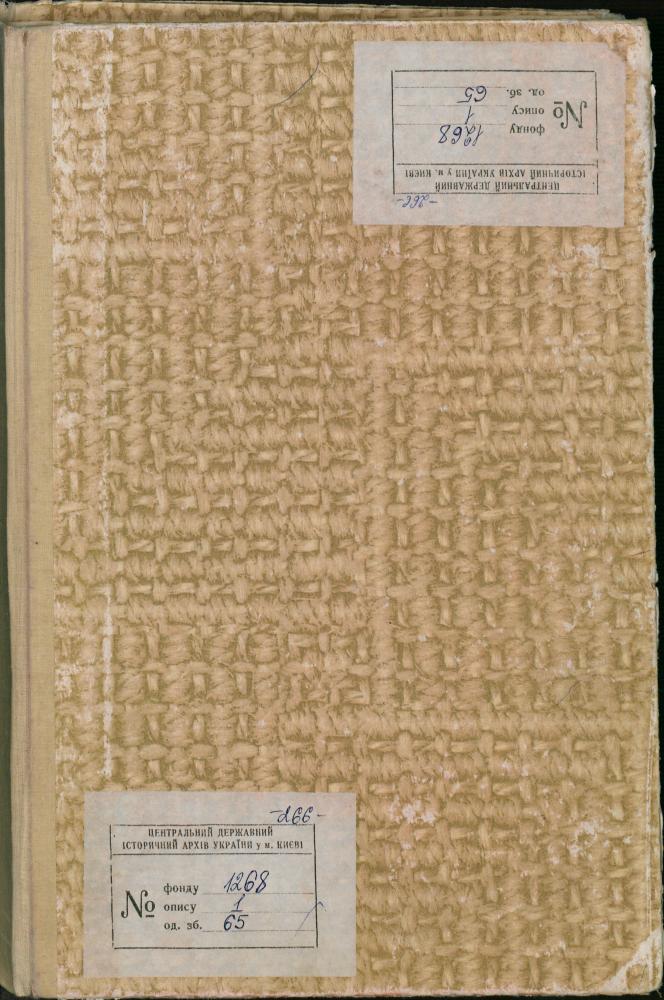 -266-
ЦЕНТРАЛЬНИЙ ДЕРЖАВНИЙ
ІСТОРИЧНИЙ АРХІВ УКРАЇНИ у м. КИЄВІ
№
фонду 1268
опису 1
од. зб. 65
-266-
ЦЕНТРАЛЬНИЙ ДЕРЖАВНИЙ
ІСТОРИЧНИЙ АРХІВ УКРАЇНИ у м. КИЄВІ
№
фонду 1268
опису 1
од. зб. 65